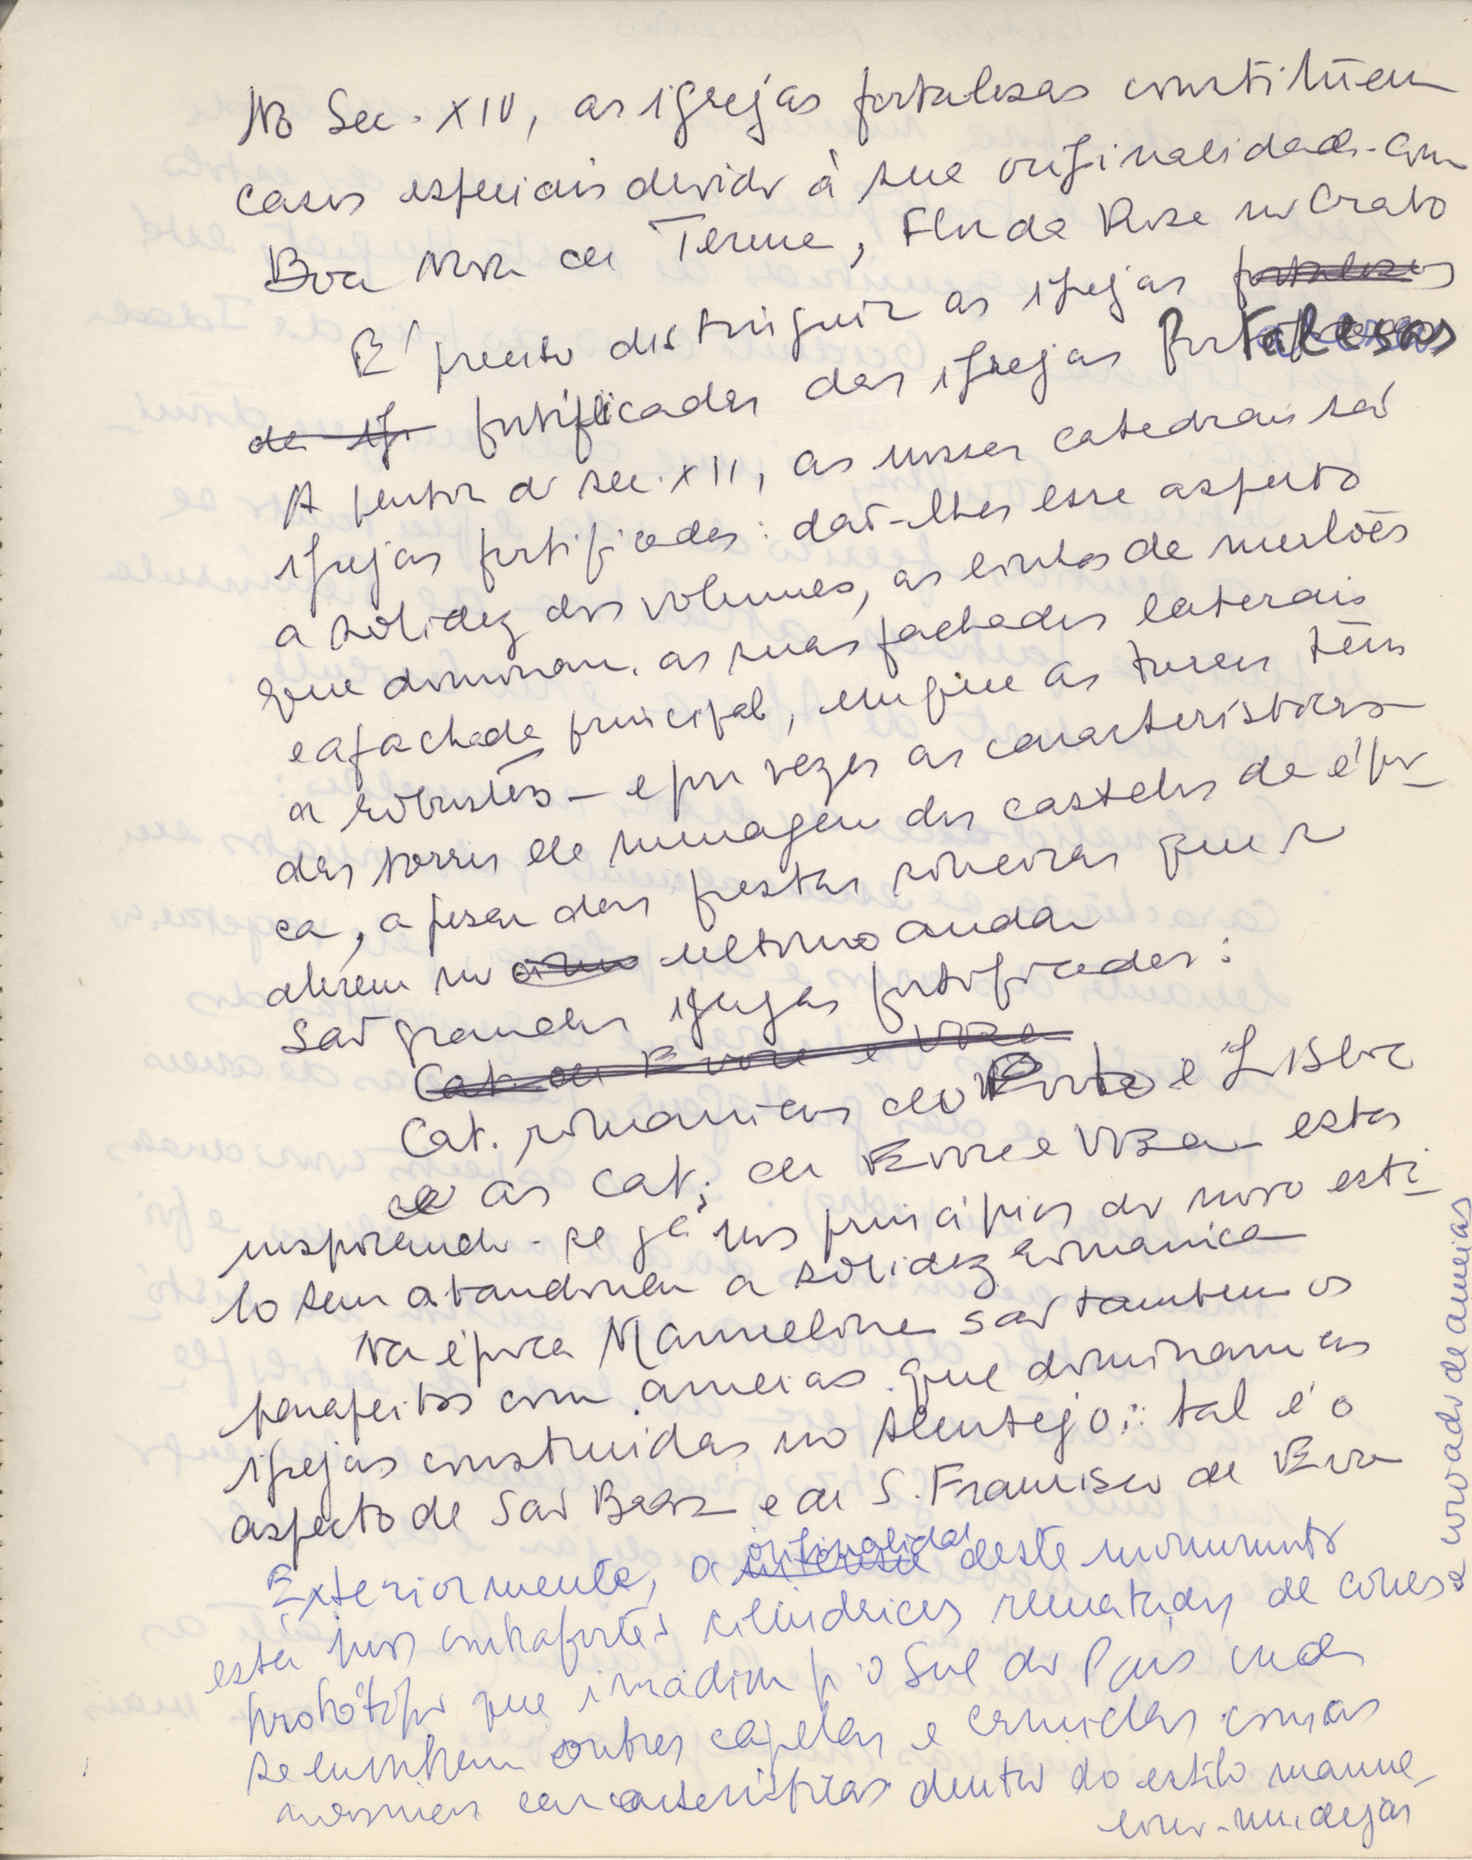 No Sec. XIV, as igrejas fortalesas constituem
casos especiais devido à sua originalidade. Com
Boa Nova de Terena, Flor da Rosa no Crato
É preciso distinguir as igrejas fortalesas
de ig fortificadas das igrejas fortalesas
A partir do sec. XII, as nossas catedrais são
igrejas fortificadas: dão-lhes esse aspecto
a solidez dos volumes, as linhas de merlões
que dominam as suas fachadas laterais
e a fachada principal, em que as torres têm
a robustês – e por vezes as caracteristicas
das torres de menagem dos castelos da épo-
ca, apesar das frestas sineiras que se
abrem no cimo ultimo andar
São grandes igrejas fortificadas:
Cat. de Evora e
Cat. romanicas do Porto e Lisboa
e as Cat. de Evora e estas
inspirando-se já nos principios do novo esti-
lo sem abandonar a solidez romanica
Na época Manuelina são tambem os
parapeitos com ameias que dominam as
igrejas construidas no Alentejo: tal é o
aspecto de São Braz e de S. Francisco de Evora
Exteriormente, a originalidade deste monumento
está nos contrafortes cilindricos rematados de cones
e coroado de ameias
protótipo que irradia p'o Sul do País onde
se encontram outras capelas e ermidas com as
mesmas caracteristicas dentro do estilo manue-
lino-mudejar